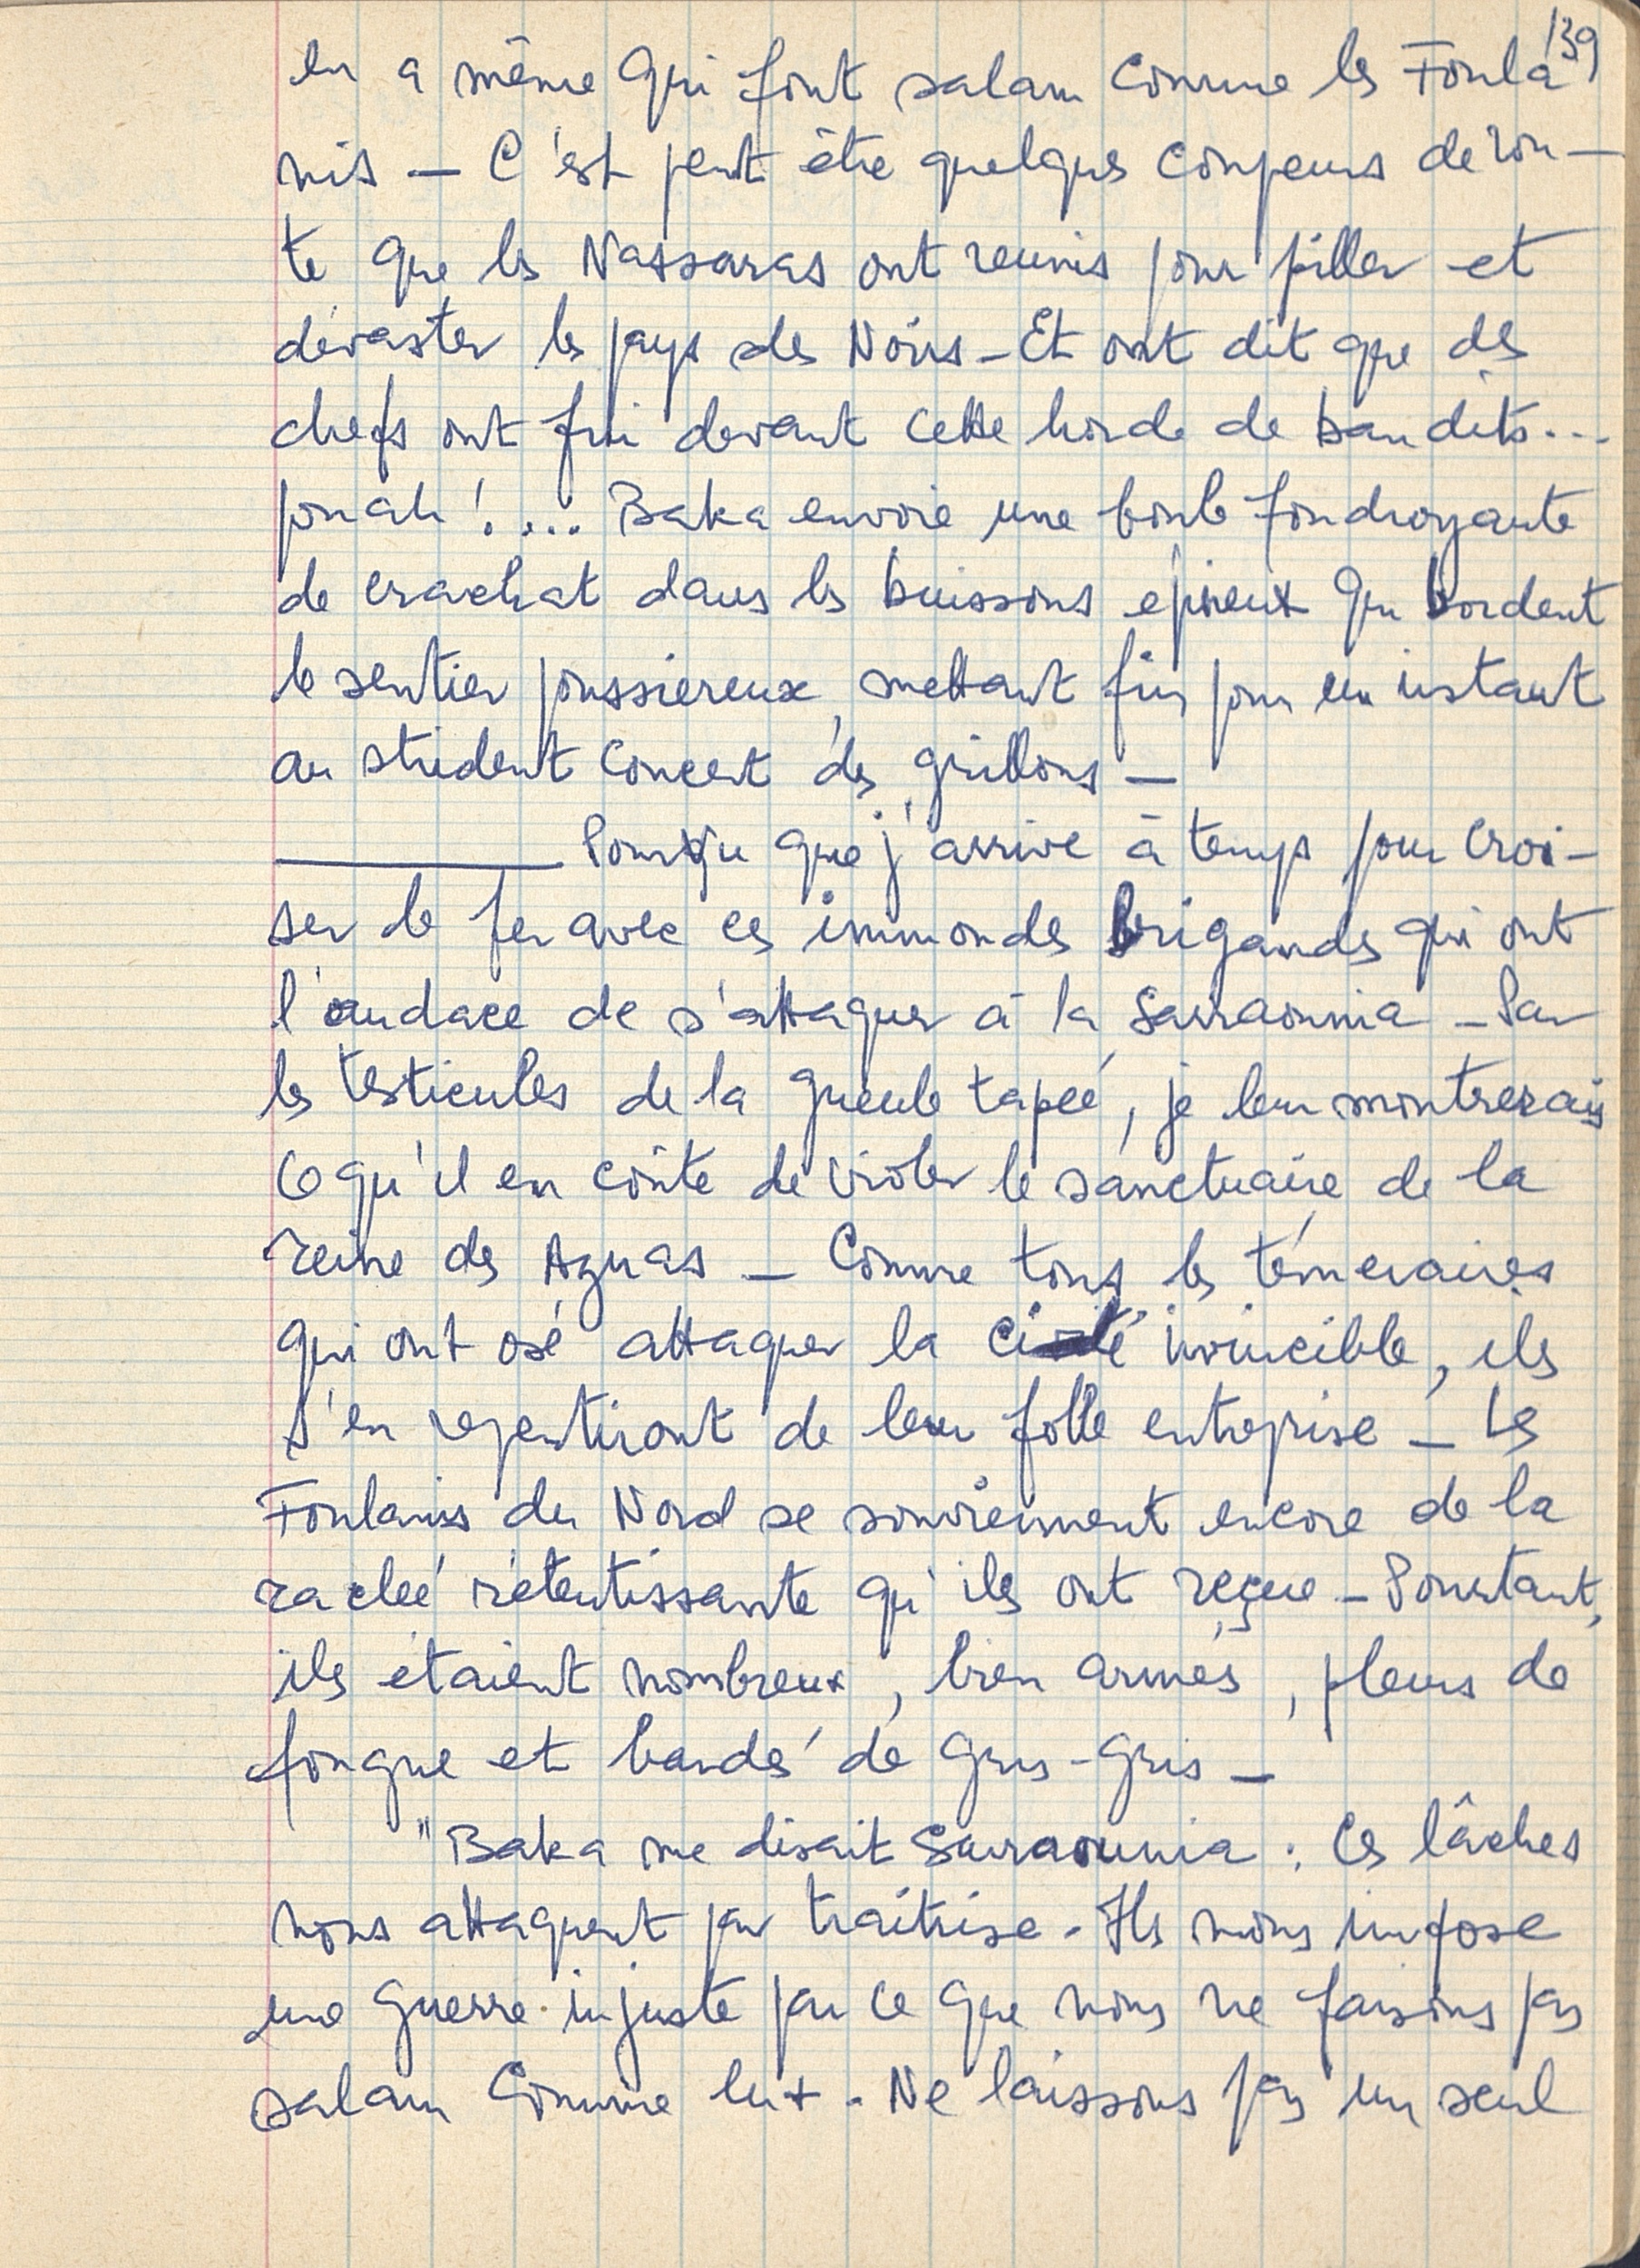 139
en a même qui font salam comme les Foula
nis — C'est peut être quelques coupeurs de rou-
te que les Nassaras ont reunis pour piller et
dévaster les pays des Noirs — Et ont dit que des
chefs ont fui devant cette horde de bandits...
pouah !.... Baka envoie une boule foudroyante
de crachat dans les buissons épineux qui bordent
le sentier poussiereux, mettant fin pour un instant
au strident concert des grillons —
Pourvu que j'arrive à temps pour croi-
ser le fer avec ces immondes brigands qui ont
l'audace de s'attaquer à la Sarraounia — Par
les testicules de la gueule tapée, je leur montrerais
ce qu'il en coûte de violer le sanctuaire de la
reine des Aznas — Comme tous les témeraires
qui ont osé attaquer la cité invincible, ils
s'en repentiront de leur folle entreprise — Les
Foulanis du Nord se souviennent encore de la
raclée rétentissante qu'ils ont reçue — Pourtant,
ils étaient nombreux, bien armés, pleins de
fougue et bardés de Gris-Gris —
"Baka me disait Sarraounia : Ces lâches
nous attaquent par traitrise. Ils nous impose
une guerre injuste par ce que nous ne faisons pas
salam comme eux. Ne laissons pas un seul